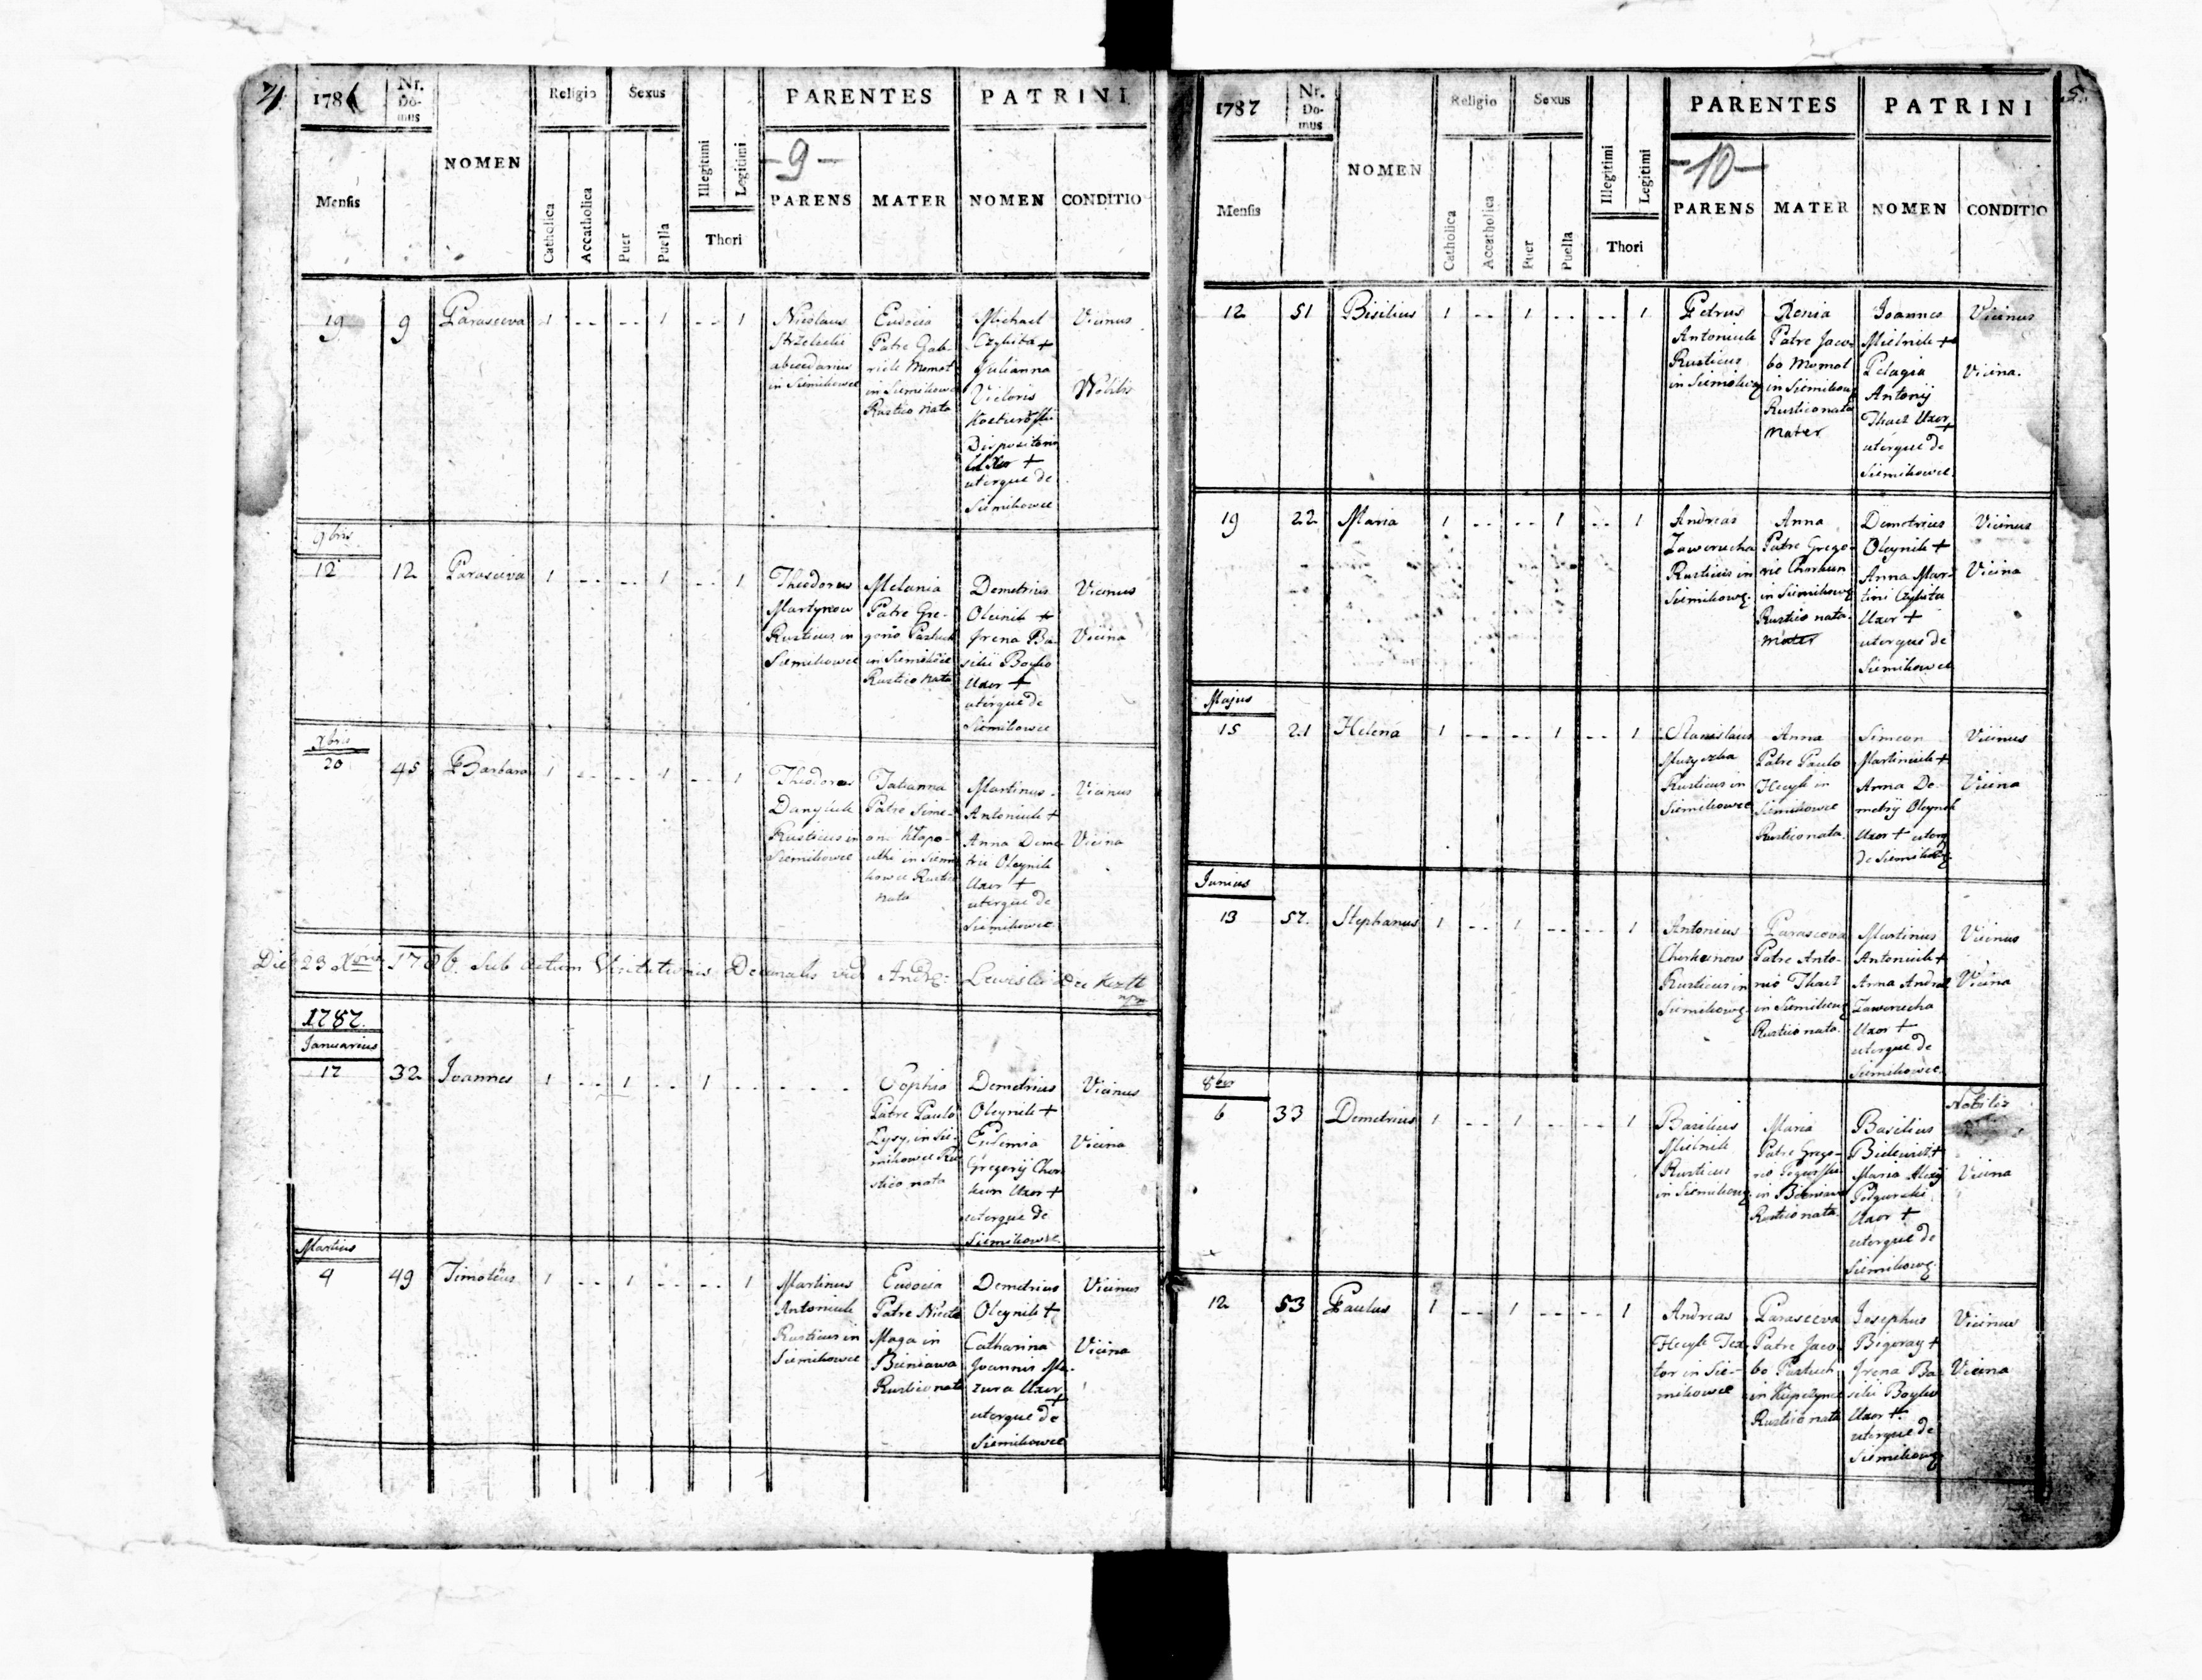 4.
1786
Nr. Do-mus
NOMEN
Religio
Sexus
PARENTES
PATRINI
-9-
Mensis
Catholica
Accatholica
Puer
Puella
Illegitimi
Legitimi
Thori
PARENS
MATER
NOMEN
CONDITIO
19
9
Parasceva
1
1
1
Nicolaus
in Siemikowce
Eudocia
Patre Gab-
riele Momot
in Siemikowce
Rustico nata
Michael
Czykita +
Julianna
Victoris
Uxor +
uterque de
Siemikowce
Vicinus
Nobilis
9bris
12
12
Parasceva
1
1
1
Theodorus
Martynow
Rusticus in
Siemikowce
Melania
Patre Gre-
gorio Pastuch
in Siemikowce
Rustico nata
Demetrius
Oleinik +
Irena Ba-
silii Boyko
Uxor +
uterque de
Siemikowce
Vicinus
Vicina
Xbris
20
45
Barbara
1
1
1
Theodorus
Rusticus in
Siemikowce
Tatianna
Patre Sime-
one
in Siemi-
kowce Rustico
nata
Martinus
Antoniuk +
Anna Deme-
trii Oleynik
Uxor +
uterque de
Siemikowce
Vicinus
Vicina
Die 23 Xbris 1786. Sub actum Visitationis Decanalis vidi
1787.
Januarius
17
32
Joannes
1
1
1
Sophia
Patre Paulo
Lysy, in Sie-
mikowce Ru-
stico nata
Demetrius
Oleynik +
Eufemia
Gregorij Chor-
kun Uxor +
uterque de
Siemikowce
Vicinus
Vicina
Martius
4
49
Timoteus
1
1
1
Martinus
Antoniuk
Rusticus in
Siemikowce
Eudocia
Patre
Maga in
Bieniawa
Rustico nata
Demetrius
Oleynik +
Catharina
Joannis Ma-
zura Uxor
+
uterque de
Siemikowce
Vicinus
Vicina
5.
1787
Nr. Do-mus
NOMEN
Religio
Sexus
PARENTES
PATRINI
-10-
Mensis
Catholica
Accatholica
Puer
Puella
Illegitimi
Legitimi
Thori
PARENS
MATER
NOMEN
CONDITIO
12
51
Bisilius
1
1
1
Petrus
Antoniuk
Rusticus
Xenia
Patre Jaco-
bo Momot
Rustico nata
Mater
Joannes
Mielnik +
Pelagia
Antonij
Tkacz Uxor
+
uterque de
Siemikowce
Vicinus
Vicina.
19
22
Maria
1
1
1
Andreas
Zawerucha
Rusticus in
Anna
Patre Grego-
rio Chorkun
Rustico nata
Mater
Demetrius
Oleynik +
Anna Mar-
tini Czykita
Uxor +
uterque de
Siemikowce
Vicinus
Vicina
Majus
15
21
Helena
1
1
1
Stanislaus
Muzyczka
Rusticus in
Siemikowce
Anna
Patre Paulo
Hecyk in
Siemikowce
Rustico nata.
Simeon
Martiniuk +
Anna De-
metrij Oleynik
Uxor +
Vicinus
Vicina
Junius
13
57.
Stephanus
1
1
1
Antonius
Rusticus in
Parasceva
Patre Anto-
nio Tkacz
Rustico nata.
Martinus
Antoniuk +
Anna Andreæ
Zawerucha
Uxor +
uterque de
Siemikowce
Vicinus
Vicina
8ber
6
33
Demetrius
1
1
1
Basilius
Mielnik
Rusticus
Maria
Patre Grego-
rio
in Bieniawa
Rustico nata.
Basilius
Maria Alexij
Podgurski
Uxor +
uterque de
Nobilis
Vicina
12
53
Paulus
1
1
1
Andreas
Hecyk Tex-
tor in Sie-
mikowce
Parasceva
Patre Jaco-
bo Pastuch
Rustico nata
Josephus
Bigoray +
Irena Ba-
silii Boyko
Uxor +
uterque de
Vicinus
Vicina